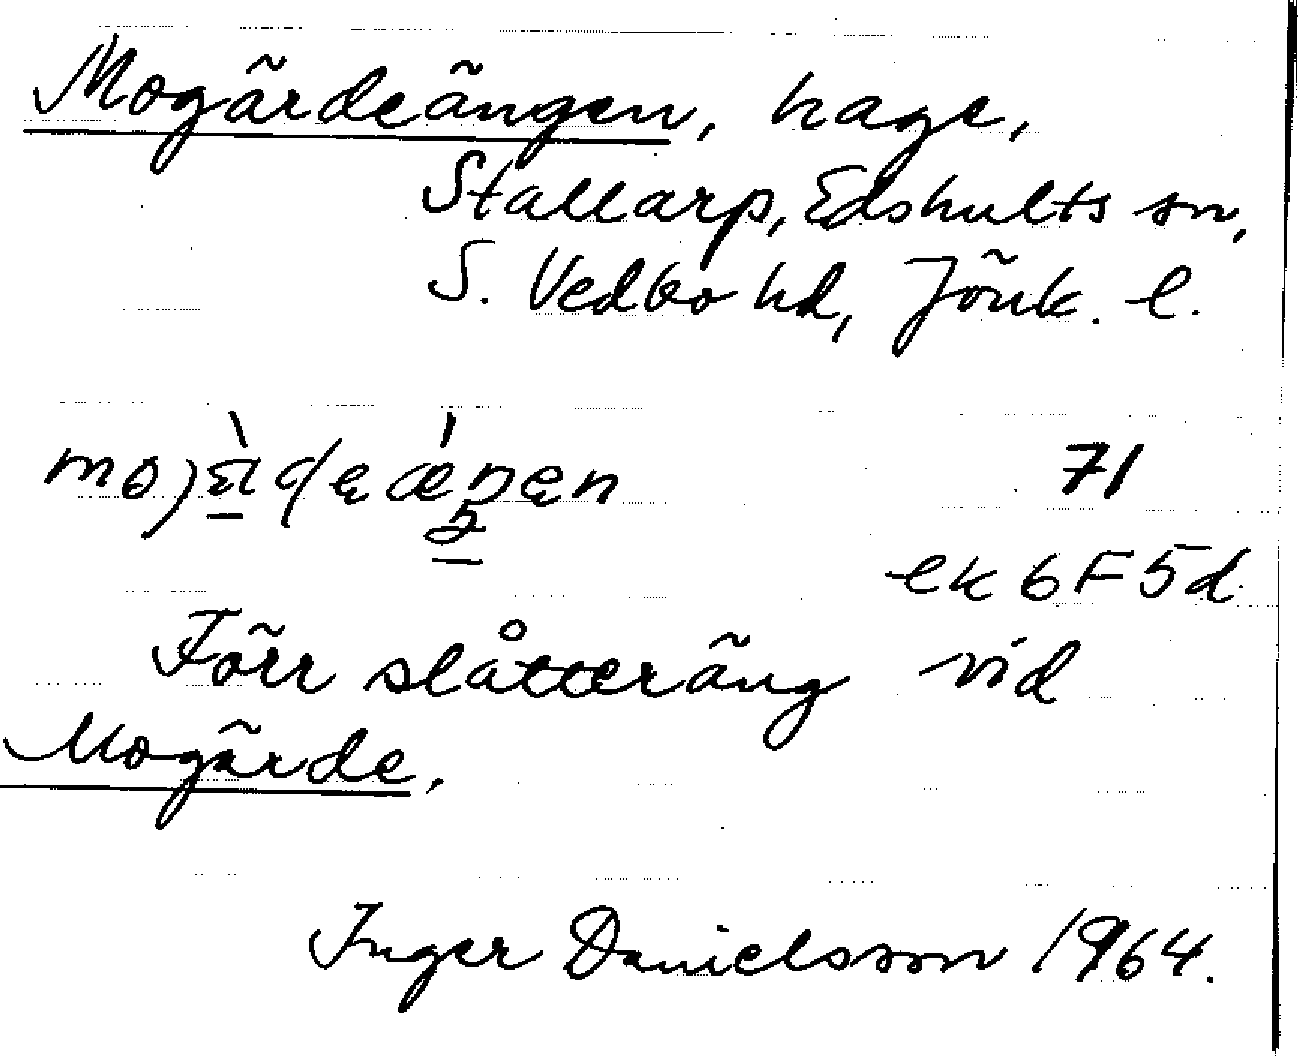 Mogärdeängen, hage,
Stallarp, Edshults sn,
S. Vedbo hd, Jönk. l.
71
ek 6F5d
Förr slåtteräng vid
Mogärde.
Inger Danielsson 1964.